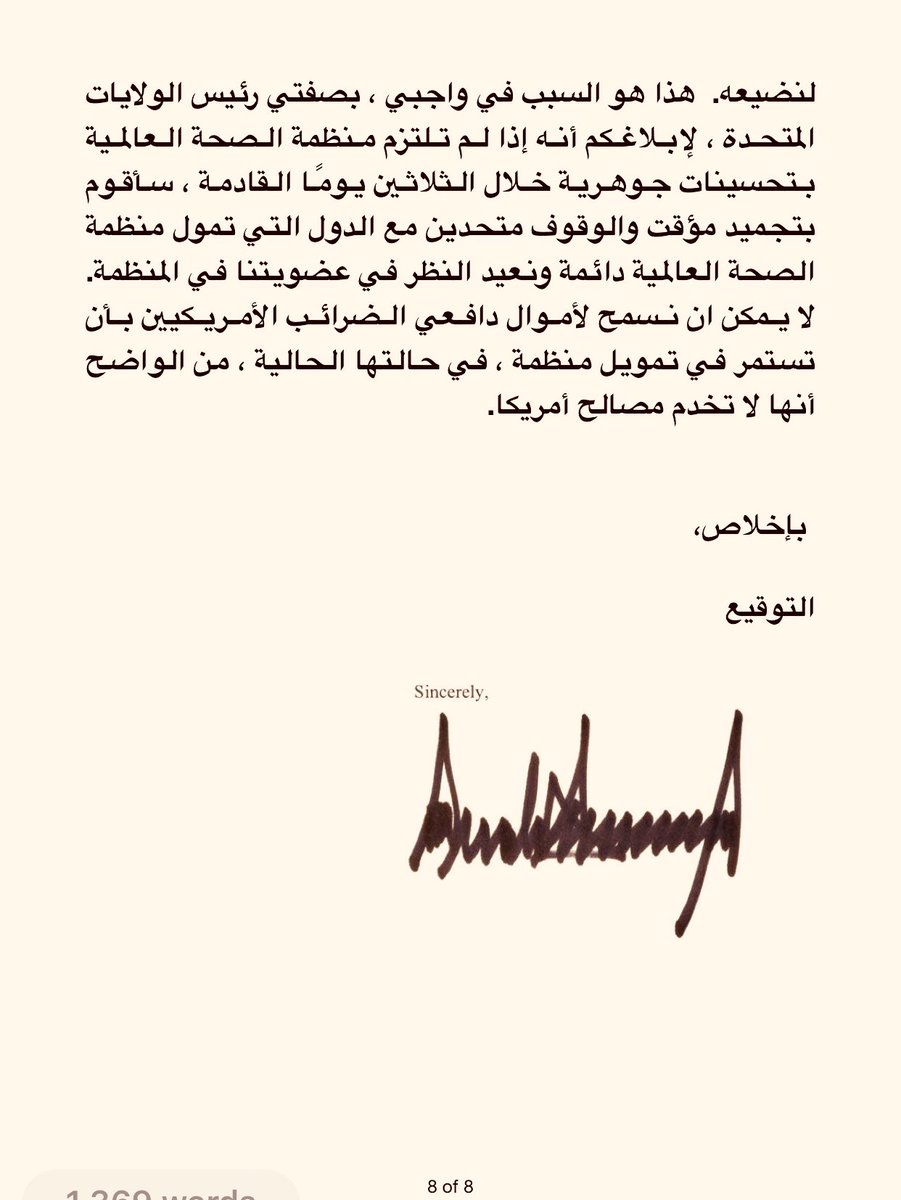 لنضيعه. هذا هو السبب في واجبي ، بصفتي رئيس الولايات
المتحدة ، لإبلاغكم أنه إذا لم تلتزم منظمة الصحة العالمية
بتحسينات جوهرية خلال الثلاثين يومًا القادمة ، سأقوم
بتجميد مؤقت والوقوف متحدين مع الدول التي تمول منظمة
الصحة العالمية دائمة ونعيد النظر في عضويتنا في المنظمة.
لا يمكن ان نسمح لأموال دافعي الضرائب الأمريكيين بأن
تستمر في تمويل منظمة ، في حالتها الحالية ، من الواضح
أنها لا تخدم مصالح أمريكا.
بإخلاص،
التوقيع
Sincerely,
8 of 8
1,369 words